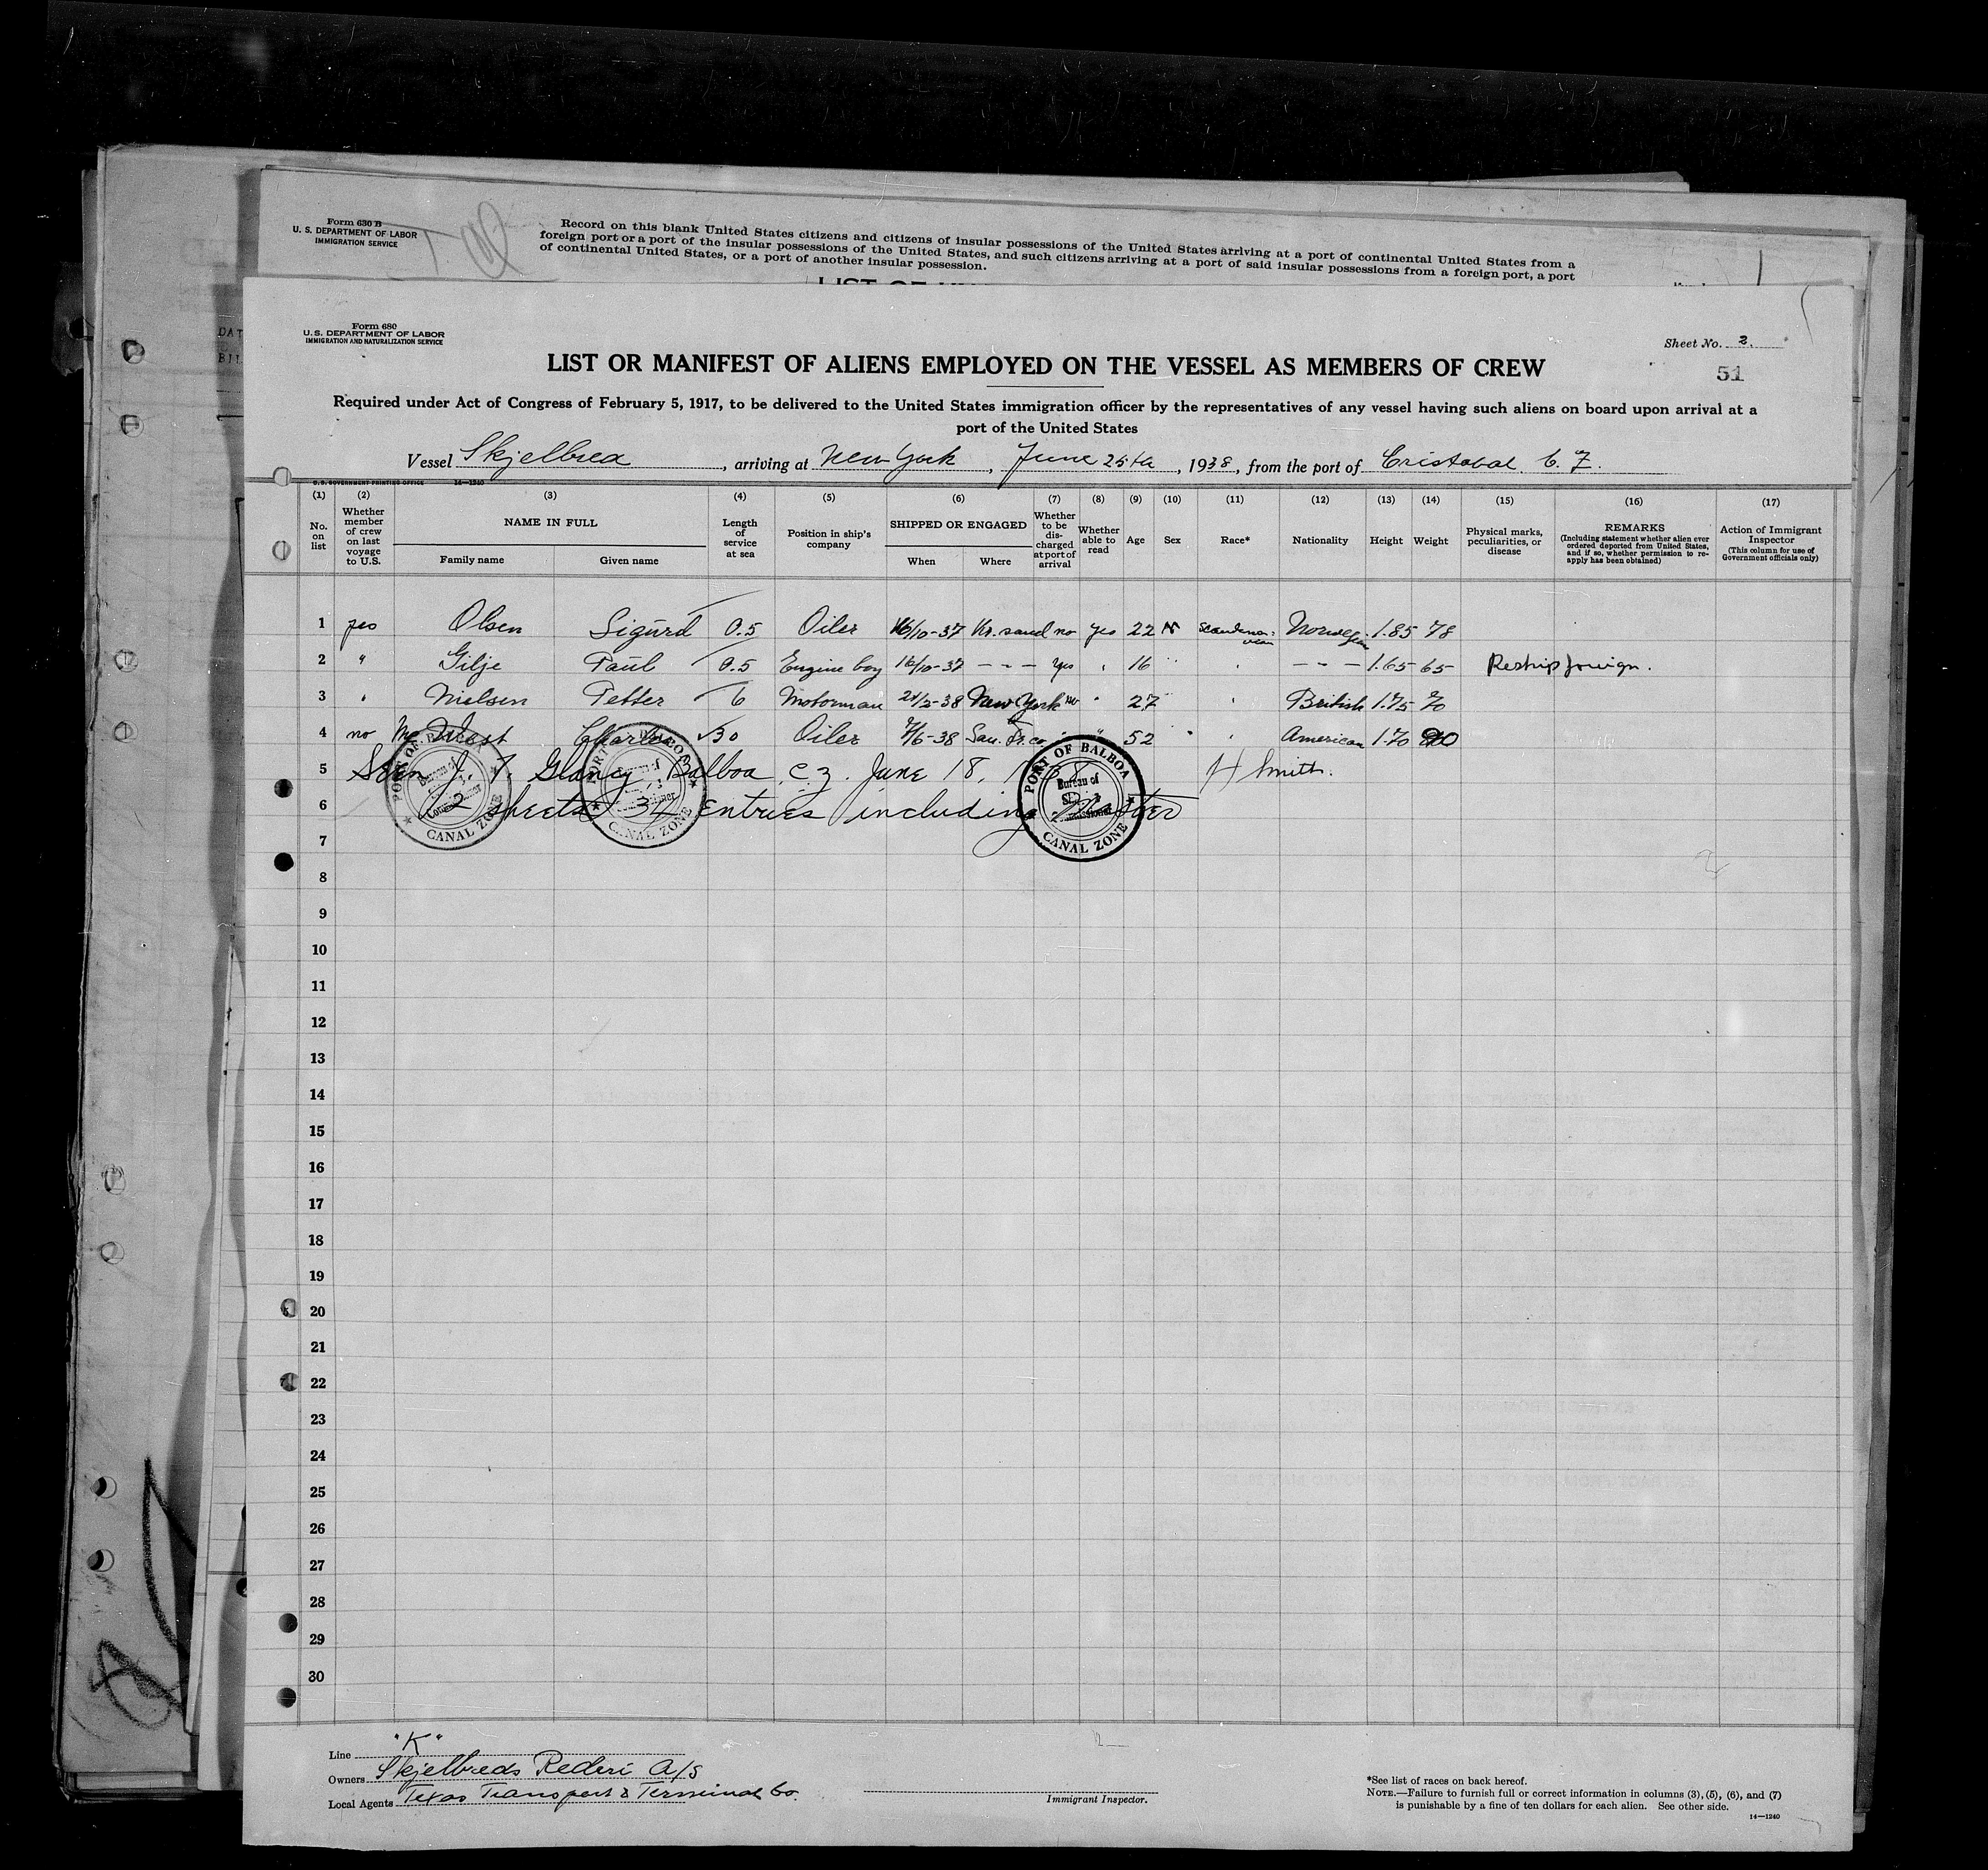 Form 630 B
U. S. DEPARTMENT OF LABOR
IMMIGRATION SERVICE
Record on this blank United States citizens and citizens of insular possessions of the United States arriving at a port of continental United States from a
foreign port or a port of the insular possessions of the United States, and such citizens arriving at a port of said insular possessions from a foreign port, a port
of continental United States, or a port of another insular possession.
Form 680
U. S. DEPARTMENT OF LABOR
IMMIGRATION AND NATURALIZATION SERVICE
Sheet No. 2.
51
LIST OR MANIFEST OF ALIENS EMPLOYED ON THE VESSEL AS MEMBERS OF CREW
Required under Act of Congress of February 5, 1917, to be delivered to the United States immigration officer by the representatives of any vessel having such aliens on board upon arrival at a
port of the United States
Vessel Skjelbred, arriving at New York, June 25th, 1938, from the port of Cristobal C. Z.
U. S. GOVERNMENT PRINTING OFFICE 14—1240
(1) (2) (3) (4) (5) (6) (7) (8) (9) (10) (11) (12) (13) (14) (15) (16) (17)
No. on list
Whether member of crew on last voyage to U.S.
NAME IN FULL
Family name Given name
Length of service at sea
Position in ship's company
SHIPPED OR ENGAGED
When Where
Whether to be discharged at port of arrival
Whether able to read
Age
Sex
Race*
Nationality
Height
Weight
Physical marks, peculiarities, or disease
REMARKS
(Including statement whether alien ever ordered deported from United States, and if so, whether permission to reapply has been obtained)
Action of Immigrant Inspector
(This column for use of Government officials only)
1 yes Olsen Sigurd 0.5 Oiler 16/10-37 Kr.sand no yes 22 Scandinavian Norwegian 1.85 78
2 " Gilje Paul 0.5 Engine boy 16/10-37 - - - Yes " 16 " " - - - 1.65 65 Reship foreign.
3 " Nielsen Petter 6 Motorman 21/2-38 New York no " 27 " " British 1.75 70
4 no Charles 30 Oiler 7/6-38 San. Fr.co. " " 52 " " American 1.70
5 Seen J. T. Glancy Balboa, C.Z. June 18, 1938 H Smith.
6 2 sheets 34 entries including Master
PORT OF BALBOA
CANAL ZONE
PORT OF BALBOA
CANAL ZONE
PORT OF BALBOA
Bureau of
CANAL ZONE
7
8
9
10
11
12
13
14
15
16
17
18
19
20
21
22
23
24
25
26
27
28
29
30
Line "K"
Owners Skjelbreds Rederi A/S
Local Agents Texas Transport & Terminal Co.
Immigrant Inspector.
*See list of races on back hereof.
NOTE.—Failure to furnish full or correct information in columns (3), (5), (6), and (7)
is punishable by a fine of ten dollars for each alien. See other side.
14—1240